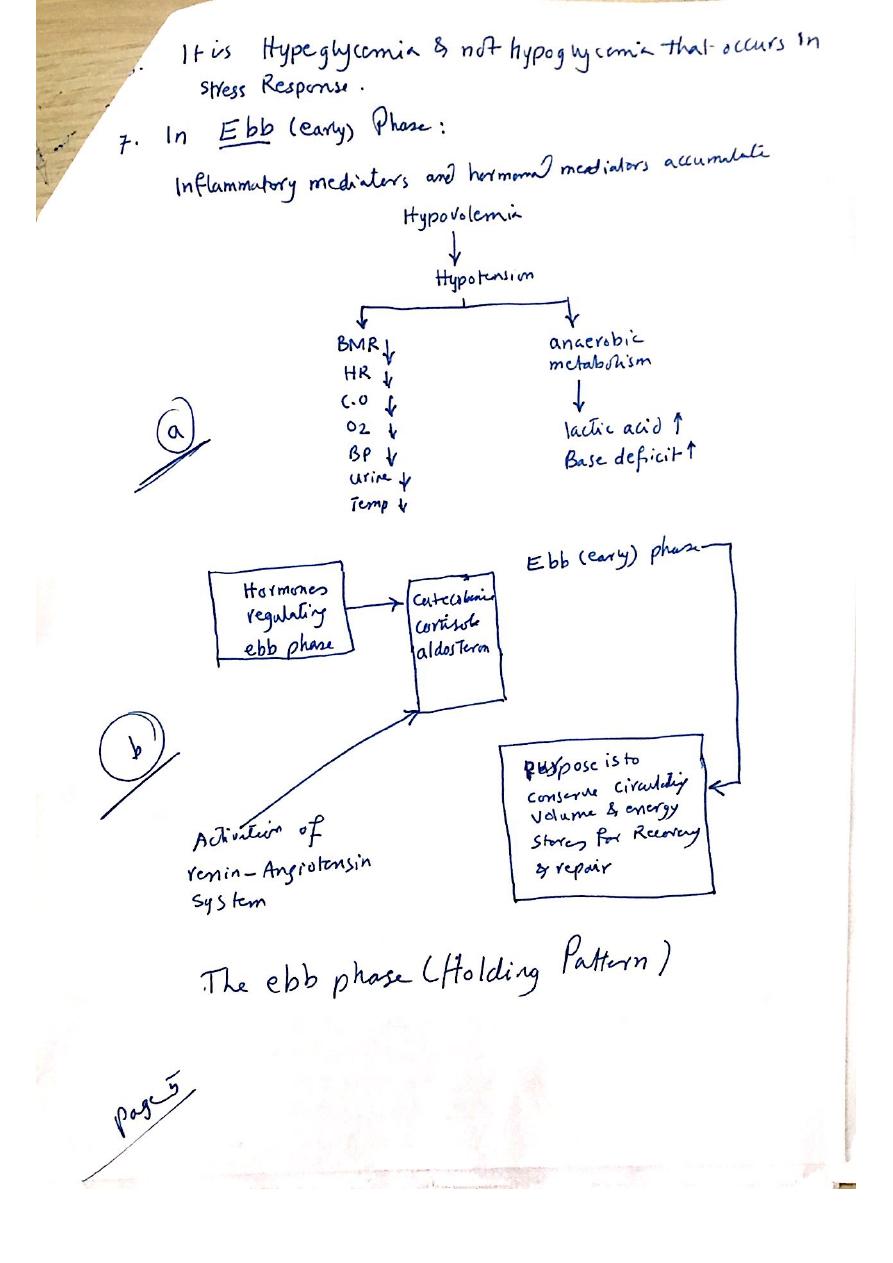 It is Hypeglycemia & not hypoglycemia that occurs in
stress Response.
7. In Ebb (early) Phase:
Inflammatory mediators and hormonal mediators accumulate
Hypovolemia
↓
Hypotension
BMR ↓
HR ↓
C.O ↓
O2 ↓
BP ↓
urine ↓
Temp ↓
anaerobic
metabolism
↓
lactic acid ↑
Base deficit ↑
a
Ebb (early) phase
Hormones
regulating
ebb phase
cortisole
aldosteron
b
purpose is to
conserve circulating
volume & energy
stores for Recovery
& repair
Activation of
renin-Angiotensin
system
The ebb phase (Holding Pattern)
page 5